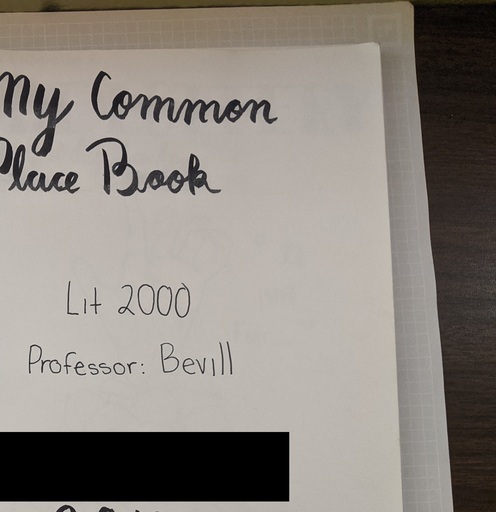 My Common
Place Book
Lit 2000
Professor: Bevill